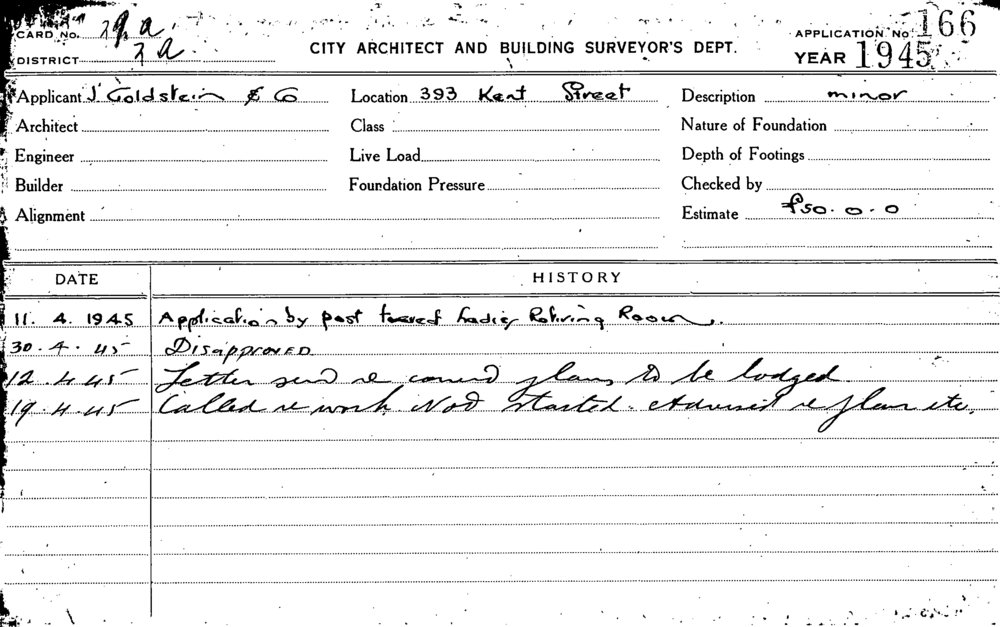 CARD NO.
DISTRICT
CITY ARCHITECT AND BUILDING SURVEYOR'S DEPT.
APPLICATION No. 166
YEAR 1945
Applicant J Goldstein & Co Location 393 Kent Street Description minor
Architect Class Nature of Foundation
Engineer Live Load Depth of Footings
Builder Foundation Pressure Checked by
Alignment Estimate £50.0.0
DATE HISTORY
11.4.1945 Application by post Ladies Retiring Room.
30.4.45 Disapproved
12.4.45 Letter send re plans to be lodged.
19.4.45 Called re work Not started. Advised re plan etc.